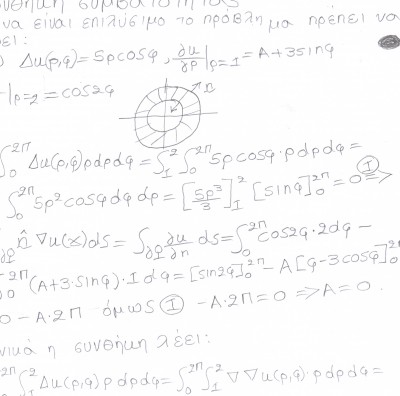 συνθήκη συμβατότητας
να είναι επιλύσιμο το πρόβλημα πρέπει να
ει:
Δu(ρ,φ) = 5ρcosφ, ∂u/∂ρ|ρ=1 = A+3sinφ
|ρ=2 = cos2φ
n
∫₀^2π Δu(ρ,φ)ρdρdφ = ∫₁² ∫₀^2π 5ρcosφ·ρdρdφ =
∫₀^2π 5ρ²cosφdφdρ = [5ρ³/3]₁² [sinφ]₀^2π = 0 ⇒ Ⓘ
∂Ω n̂ ∇u(x)ds = ∫∂Ω ∂u/∂n ds = ∫₀^2π cos2φ·2dφ -
₀^2π (A+3·sinφ)·1dφ = [sin2φ]₀^2π - A[φ-3cosφ]₀^2π
0 - A·2π όμως Ⓘ -A·2π=0 => A=0.
νικά η συνθήκη λέει:
₀^2π ∫₁² Δu(ρ,φ)ρdρdφ = ∫₀^2π ∫₁² ∇∇u(ρ,φ)·ρdρdφ =